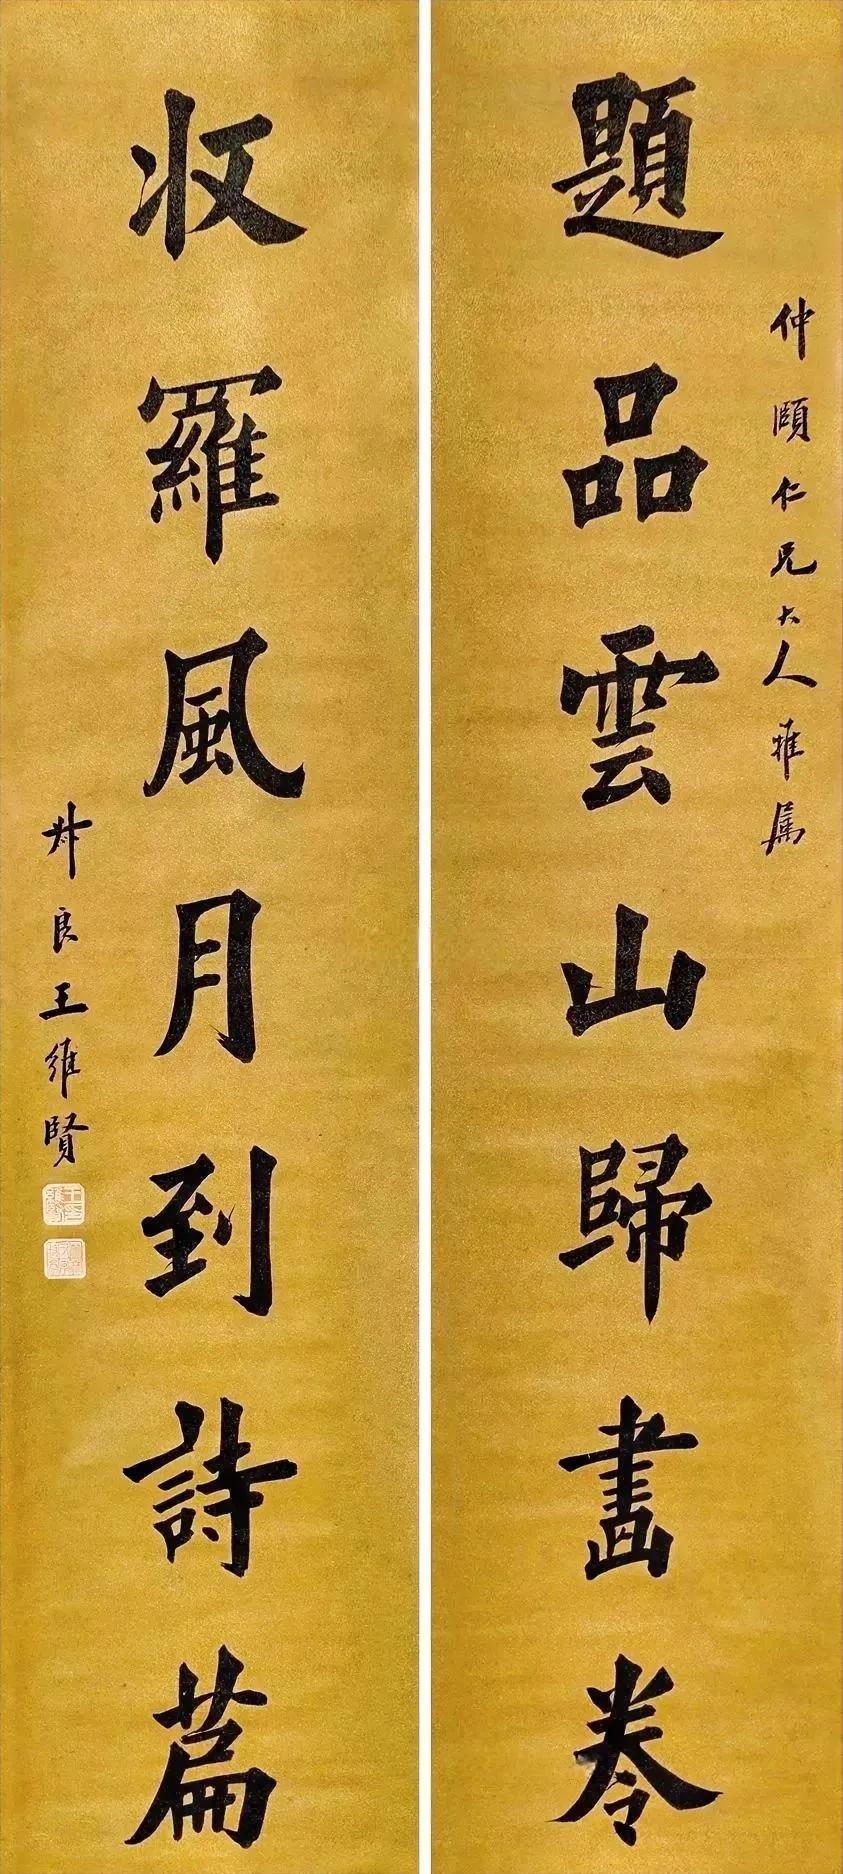 題品雲山歸畫卷
仲頤仁兄大人雅属
収羅風月到詩篇
弼良王維賢